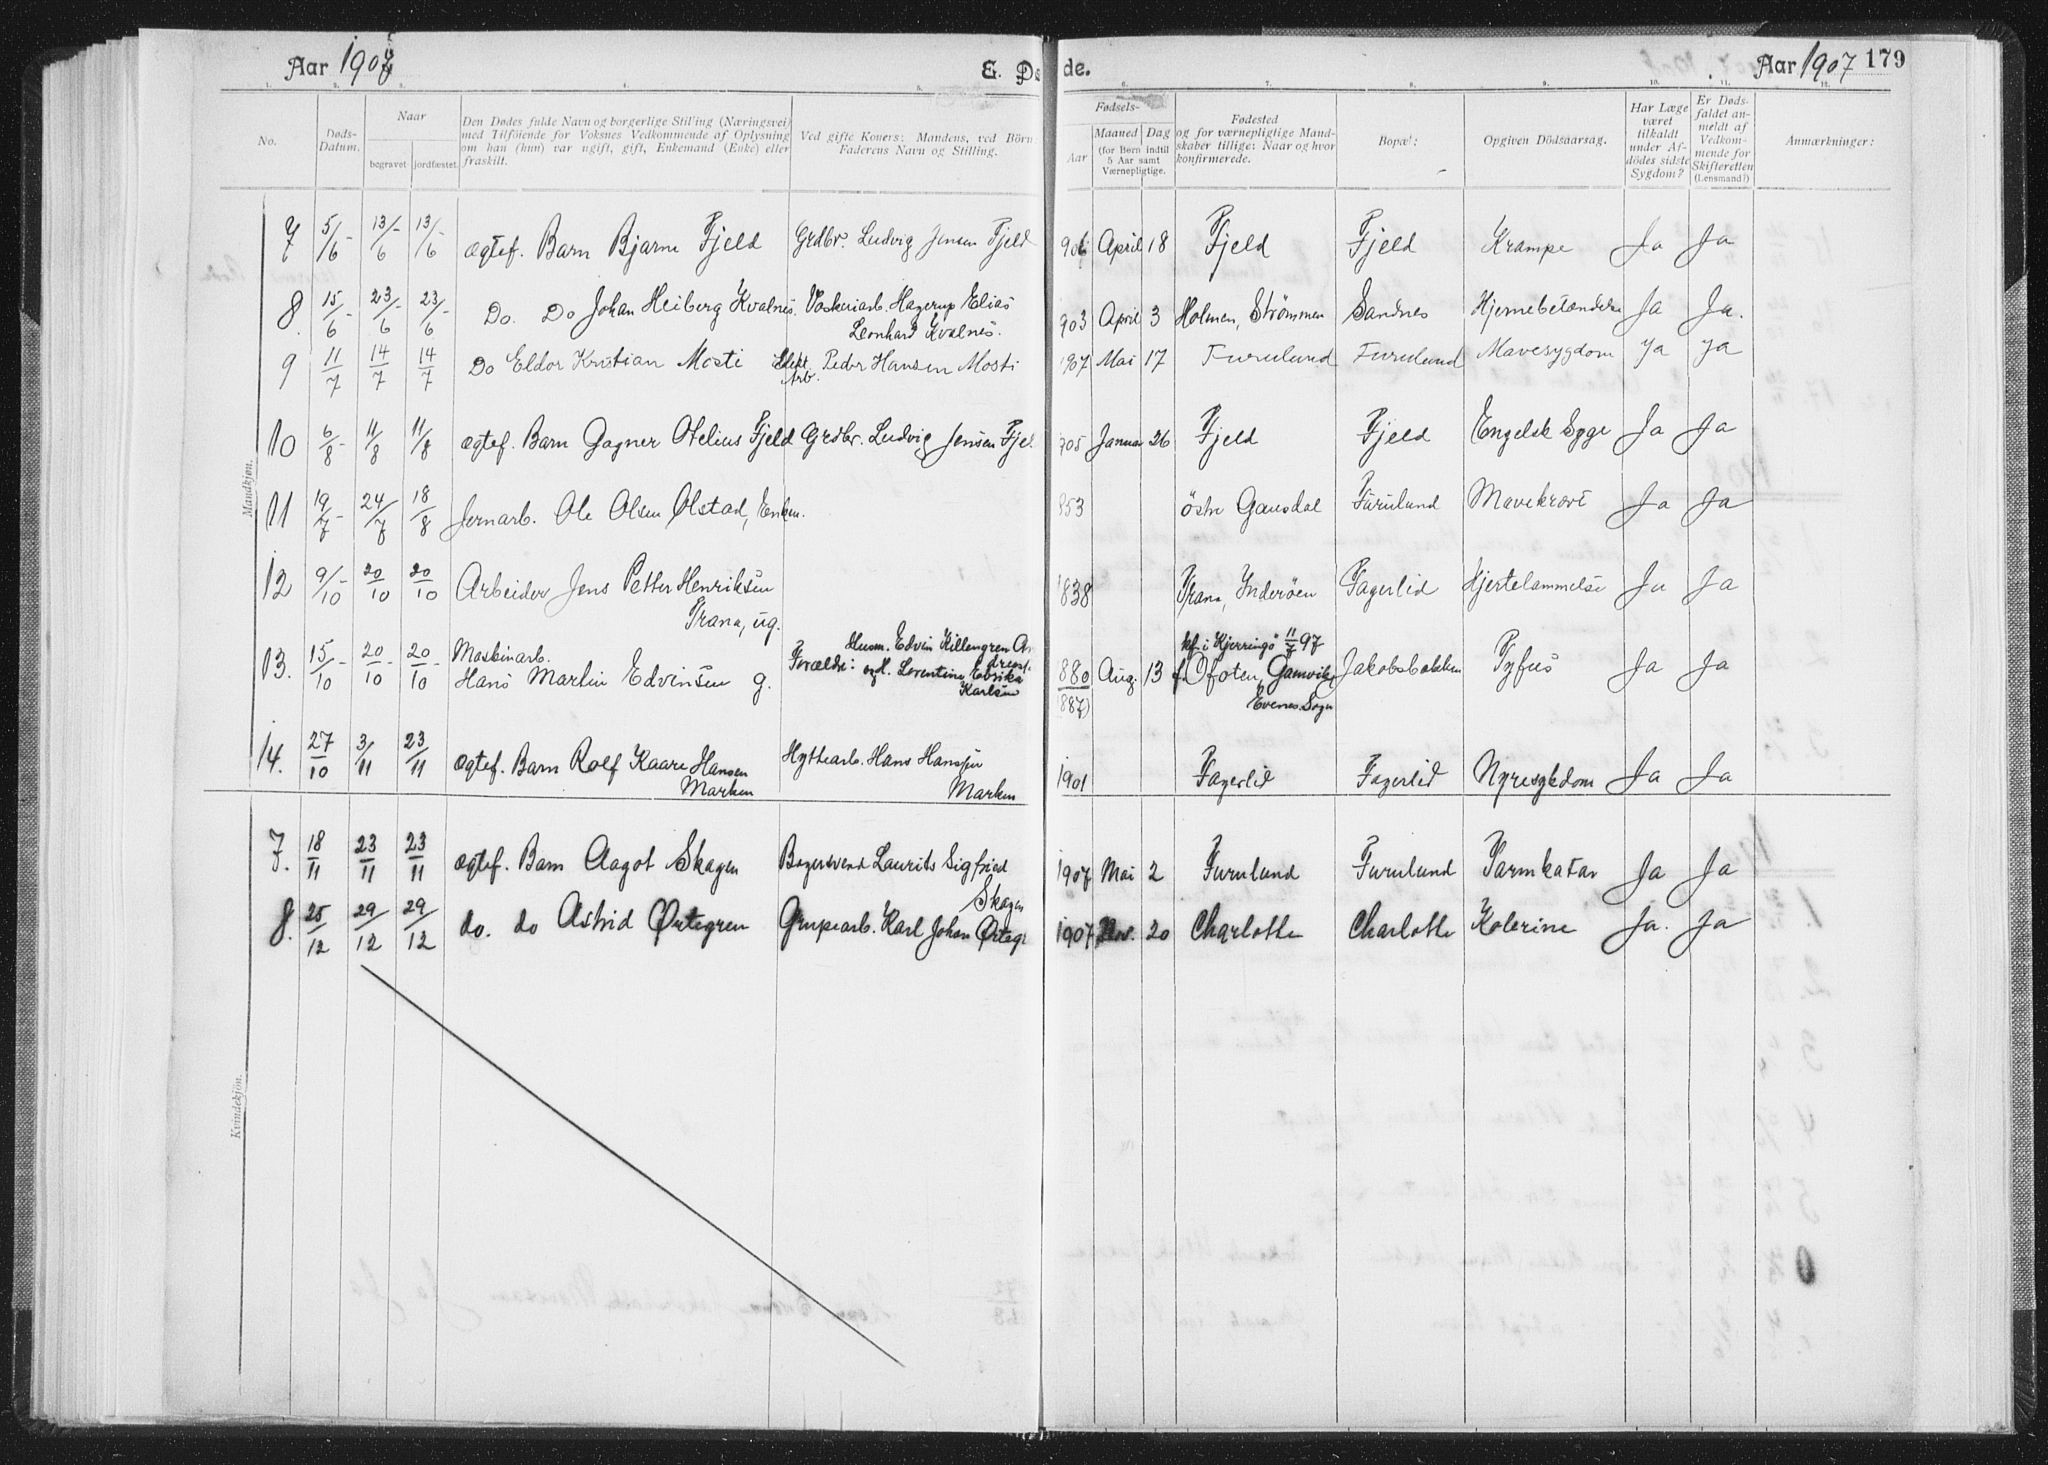 Aar 1907
E. Dø
de.
Aar 1907 179
No.
Døds-
Datum.
Naar
begravet
jordfæstet.
Den Dødes fulde Navn og borgerlige Stilling (Næringsvei)
med Tilföiende for Voksnes Vedkommende af Oplysning
om han (hun) var ugift, gift, Enkemand (Enke) eller
fraskilt.
Ved gifte Koner: Mandens, ved Börn
Faderens Navn og Stilling.
Fødsels-
Aar
Maaned Dag
(for Børn indtil
5 Aar samt
Værnepligtige.
Fødested
og for værnepligtige Mand-
skaber tillige: Naar og hvor
konfirmerede.
Bopæl:
Opgiven Dödsaarsag.
Har Læge
været
tilkaldt
under Af-
dödes sidste
Sygdom?
Er Døds-
faldet an-
meldt af
Vedkom-
mende for
Skifteretten
(Lensmand?)
Anmærkninger:
Mandkjøn.
7 5/6 13/6 13/6 ægtef. Barn Bjarne Fjeld Grdbr. Ludvig Jensen Fjeld 906 April 18 Fjeld Fjeld Krampe Ja Ja
8. 15/6 23/6 23/6 Do. Do Johan Heiberg Kvalnes. Vaskeriarb. Hagerup Elias
Leonhard Kvalnes.
903 April 3 Holmen, Strømmen Sandnes Hjernebetændelse Ja Ja.
9 11/7 14/7 14/7 Do Eldor Kristian Mosti Elekt. Arb. Peder Hansen Mosti 1907 Mai 17 Furulund Furulund Mavesygdom Ja Ja
10 6/8 11/8 11/8 ægtef. Barn Gagner Otelius Fjeld Grdbr. Ludvig Jensen Fjel 905 Januar 26 Fjeld Fjeld Engelsk Syge Ja Ja
11 19/7 24/7 18/8 Jernarb. Ole Olsen Olstad, Enkem. 853 östre Gausdal Furulund Mavekræft Ja Ja
12 9/10 20/10 20/10 Arbeider Jens Petter Henriksen
Trana, ug.
1838 Trana, Inderöen Fagerlid Hjertelammelse Ja Ja
13. 15/10 20/10 20/10 Maskinarb.
Hans Martin Edvinsen g.
Husm. Edvin Killengren
Forældre: Lorentine Edrika
Karlsen
880 Aug. 13
(887)
kf. i Kjerringö 11/7 97
f. Ofoten, Gamvik,
Evenes Sogn
Jakobsbakken Tyfus Ja Ja
14. 27/10 3/11 23/11 ægtef. Barn Rolf Kaare Hansen
Marken
Hyttearb. Hans Hansen
Marken
1901 Fagerlid Fagerlid Nyresykdom Ja Ja
Kvindekjön.
7. 18/11 23/11 23/11 ægtef. Barn Aagot Skagen Bagersvend Laurits Sigfried
Skagen
1907 Mai 2 Furulund Furulund Tarmkatar Ja Ja
8. 25/12 29/12 29/12 do. do Astrid Örtegren Grubearb. Karl Johan Örtegr 1907 Nov. 20 Charlotte Charlotte Kolerine Ja. Ja